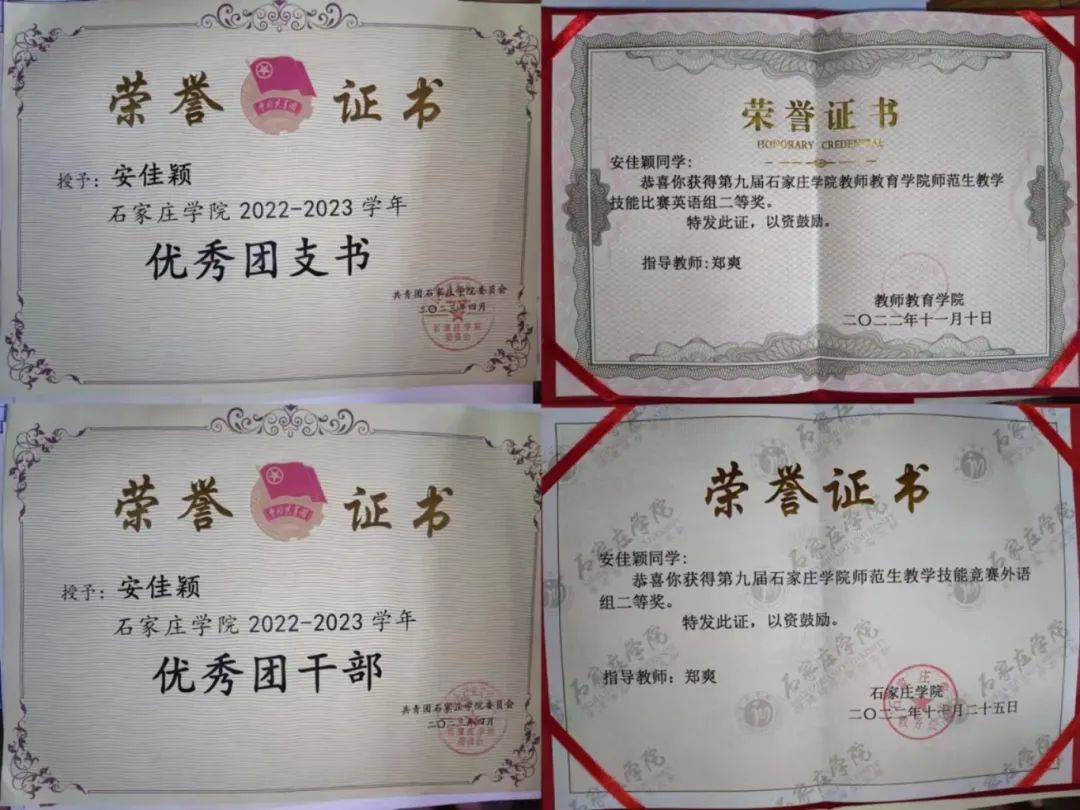 荣誉证书
授予：安佳颖
石家庄学院 2022-2023 学年
优秀团支书
共青团石家庄学院委员会
二〇二三年四月
荣誉证书
HONORARY CREDENTIAL
安佳颖同学：
恭喜你获得第九届石家庄学院教师教育学院师范生教学
技能比赛英语组二等奖。
特发此证，以资鼓励。
指导教师：郑爽
教师教育学院
二〇二二年十一月十日
荣誉证书
授予：安佳颖
石家庄学院 2022-2023 学年
优秀团干部
共青团石家庄学院委员会
二〇二三年四月
荣誉证书
安佳颖同学：
恭喜你获得第九届石家庄学院师范生教学技能竞赛外语
组二等奖。
特发此证，以资鼓励。
指导教师：郑爽
石家庄学院